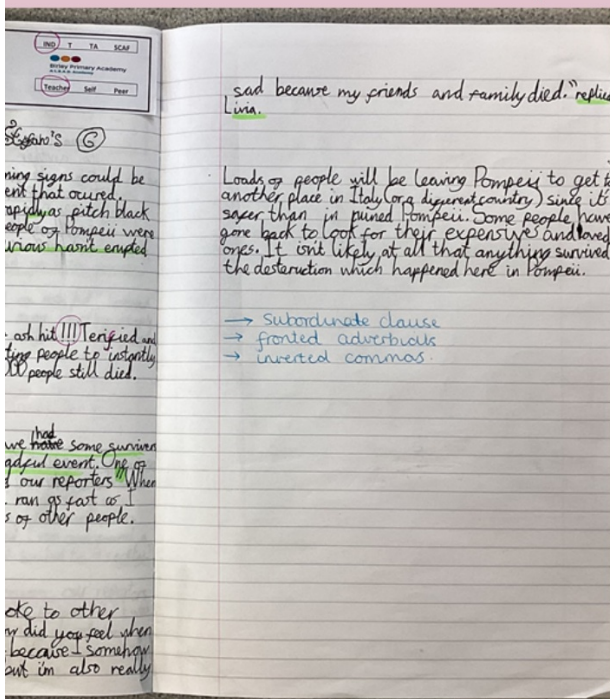 IND T TA SCAF
Birley Primary Academy
Teacher Self Peer
6
ning signs could be
ent that ocured.
apidly as pitch black
eople of Pompeii were
uvious hasn't erupted
ash hit!!! Terified and
ting people to instantly
people still died.
we had some surviver
adful event. One of
our reporters "When
ran as fast as I
s of other people.
oke to other
w did you feel when
because I somehow
but im also really
sad because my friends and family died." replied
Livia.
Loads of people will be leaving Pompeii to get to
another place in Italy (or a different country) since it's
safer than in ruined Pompeii. Some people have
gone back to look for their expensives and loved
ones. It isn't likely at all that anything survived
the desteruction which happened here in Pompeii.
→ Subordinate clause
→ fronted adverbials
→ inverted commas.